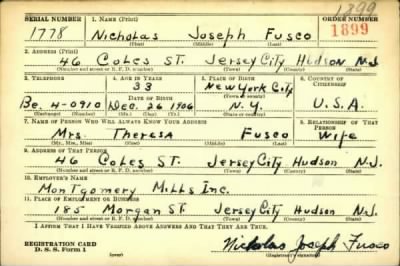 1899
SERIAL NUMBER 1. NAME (Print) ORDER NUMBER
1778 Nicholas Joseph Fusco 1899
(First) (Middle) (Last)
2. ADDRESS (Print)
46 Coles St. Jersey City Hudson N.J.
(Number and street or R. F. D. number) (Town) (County) (State)
3. TELEPHONE 4. AGE IN YEARS 5. PLACE OF BIRTH 6. COUNTRY OF CITIZENSHIP
33 New York City
DATE OF BIRTH
Be. 4-0910 Dec. 26 1906 N.Y. U.S.A.
(Exchange) (Number) (Mo.) (Day) (Yr.) (State or country)
7. NAME OF PERSON WHO WILL ALWAYS KNOW YOUR ADDRESS 8. RELATIONSHIP OF THAT PERSON
Mrs. Theresa Fusco Wife
(Mr., Mrs., Miss) (First) (Middle) (Last)
9. ADDRESS OF THAT PERSON
46 Coles St. Jersey City Hudson N.J.
(Number and street or R. F. D. number) (Town) (County) (State)
10. EMPLOYER'S NAME
Montgomery Mills Inc.
11. PLACE OF EMPLOYMENT OR BUSINESS
185 Morgan St. Jersey City Hudson N.J.
(Number and street or R. F. D. number) (Town) (County) (State)
I AFFIRM THAT I HAVE VERIFIED ABOVE ANSWERS AND THAT THEY ARE TRUE.
REGISTRATION CARD
D. S. S. Form 1 (over) Nicholas Joseph Fusco
(Registrant's signature)